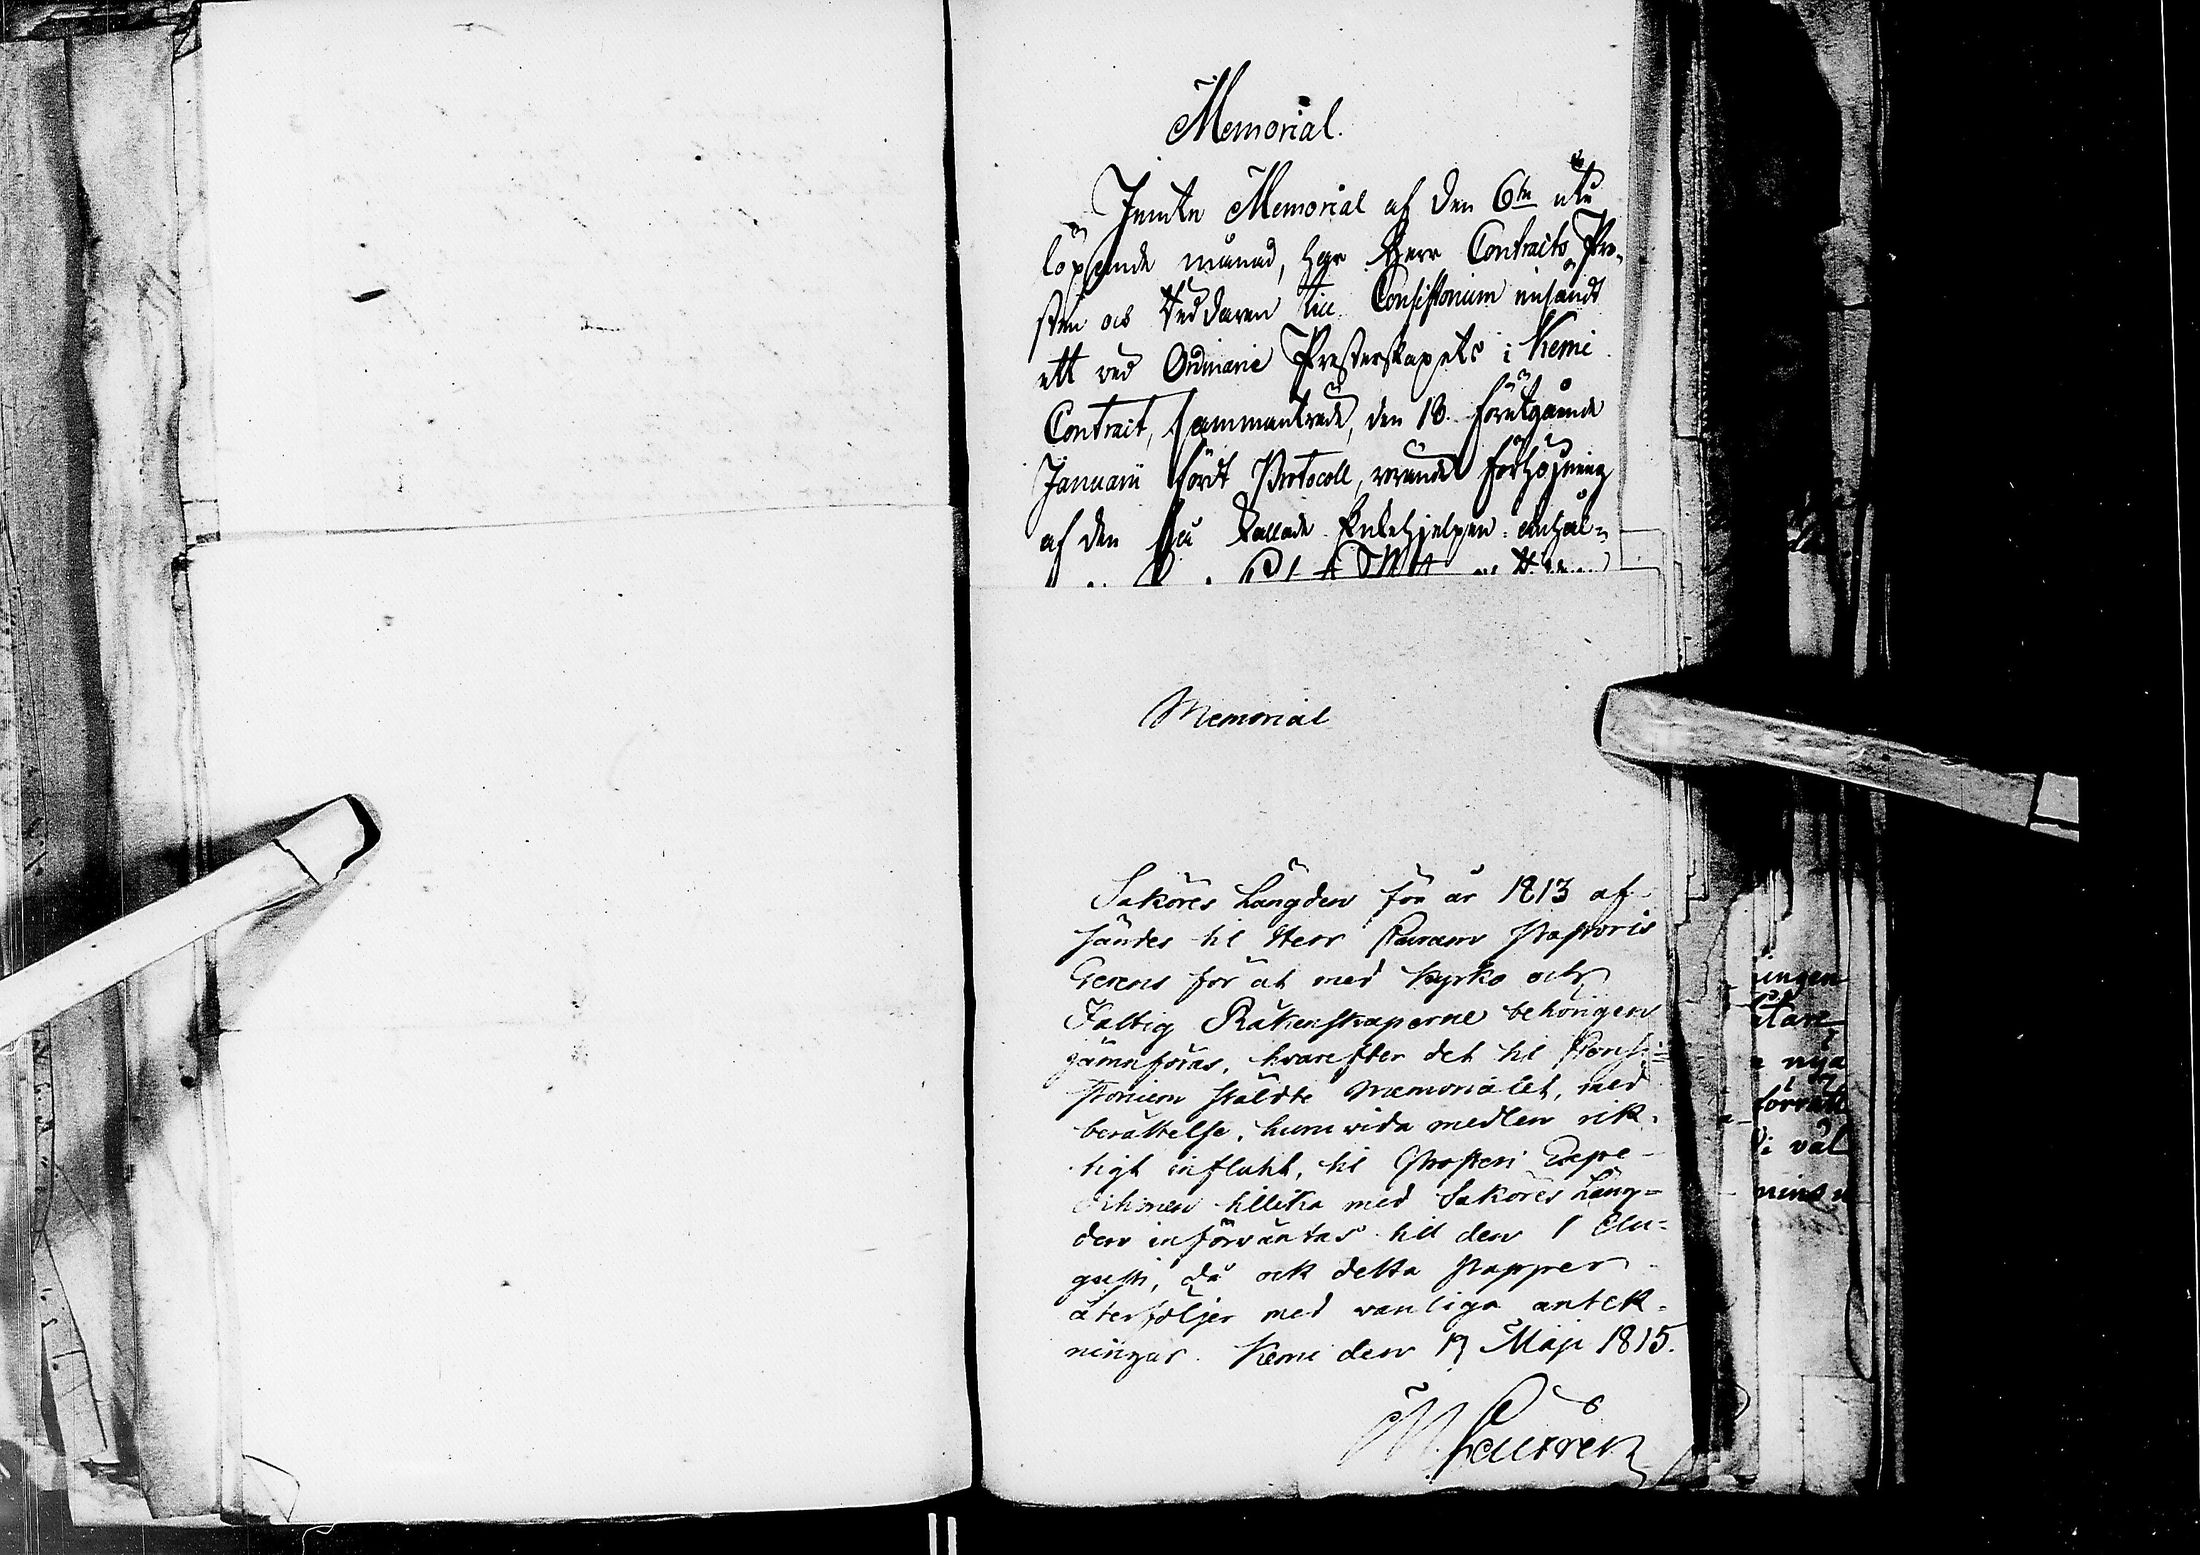 Memorial.
Jemte Memorial af den 6te uti
löpande månad, har Herr Contracts Pro-
sten och Riddaren till Consistorium insändt
ett wid Ordinarie Presterskapets i Kemi
Contract, sammanträde, den 18. föregående
Januarii fördt Protocoll, rörande förhöjning
af den så kallade Enkehjelpen
Memorial
Saköres Längden för år 1813 af
sändes til Herr Curam Pastoris
Gerens för at med Kyrko och
Fattig Räkenskaperne behörigen
jämnföras, hvarefter det til Consi=
storium stäldte Memorialet, med
berättelse, huruvida medlen rik-
tigt influtit, til Prosteri Expe-
ditionen tillika med Saköres Läng=
den införväntas till den 1 Au=
gusti, då ock detta Papper
återföljer med vanliga antek-
ningar. Kemi den 17 Maji 1815.
ungen
nya
förrätt
väl